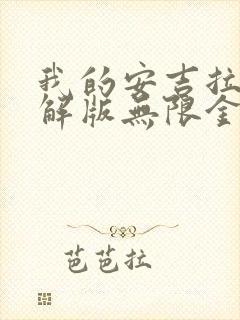 我的安吉拉
解版無限金
芭芭拉